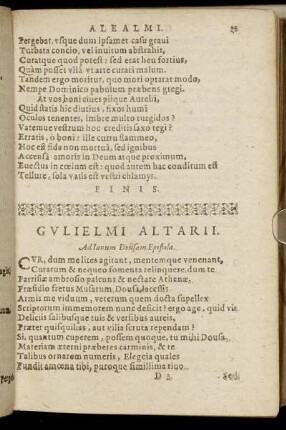 ALEALMI.
Pergebat, vsque dum ipsamet casu graui
Turbata concio, vel inuitum abstrahit,
Curatque quod potest: sed erat heu fortius,
Quàm posset vlla vt arte curari malum.
Tandem ergo moritur, quo mori optarat modo,
Nempe Dominico pabulum præbens gregi.
At vos boni ciues piique Aurelii,
Quid statis hîc diutius, fixos humi
Oculos tenentes, imbre multo turgidos?
Vatemue vestrum hoc creditis saxo tegi?
Erratis, ô boni: ille curru flammeo,
Hoc est fide non mortuâ, sed ignibus
Accensâ amoris in Deum atque proximum,
Euectus in cœlum est: quod autem hac conditum est
Tellure, sola vatis est vestri chlamys.
FINIS.
GVLIELMI ALTARII.
Ad Ianum Dousam Epistola.
CVR, dum me lites agitant, mentemque venenant,
Curatum & nequeo fomenta relinquere, dum te
Parrisiæ ambrosio paſcunt & nectare Athenæ,
Præsidio fretus Musarum, Dousa, lacessis
Armis me viduum, veterum quem docta supellex
Scriptorum immemorem nunc deficit? ergo age, quid vis
Deliciis salibusque tuis & versibus aureis,
Præter quisquilias, aut vilia scruta rependam?
Si, quantum cuperem, possem quoque, tu mihi Dousa,
Materiam æterni præberes carminis, & te
Talibus ornarem numeris, Elegeia quales
Fundit amœna tibi, puroque simillima riuo.
D 3. Sed